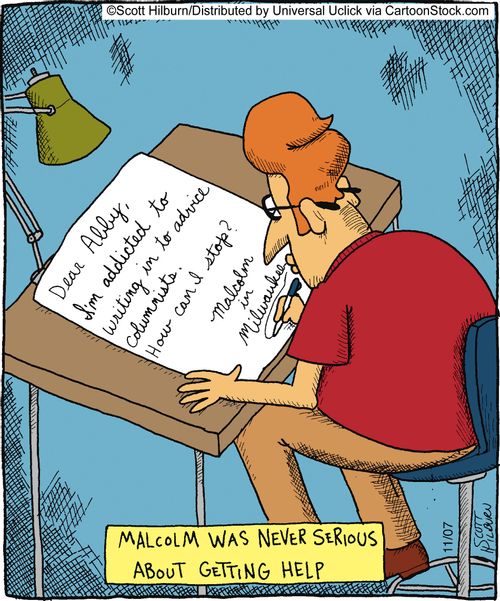 ©Scott Hilburn/Distributed by Universal Uclick via CartoonStock.com
Dear Abby,
I'm addicted to
writing in to advice
columnists.
How can I stop?
Malcolm
in
Milwaukee
11/07
SCOTT
HILBURN
MALCOLM WAS NEVER SERIOUS
ABOUT GETTING HELP